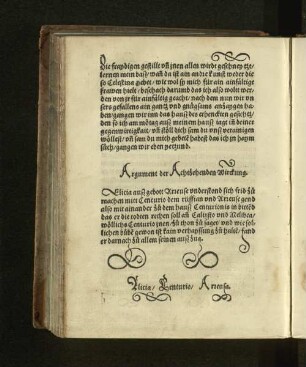 Die feygdigen gestillt vñ jnen allen wirdt geschencket
lernen wein bass / wañ du ist ain andre kunst weder die
so Celestina gebet / wie wol sy mich für ain ainfältige
frawen hielt / beschach darumb das ich also wolt wer
den von jr für ainfältig geacht / nach dem nun wir vn
sers gefallens ain gantz vnd gnůgsams anzaygen ha
ben / gangen wir inn das hauss
den so ich am mōtag auss meinem hauss sagt in deiner
gegenwirtigkait / vñ stöll dich sam du vns veraimigen
wöllest / vñ sam du mich gebeten habest das ich jn haym
sůch / gangen wir eben yetzund.
Argument der Achtzehenden Wirckung.
Elicia auss gebott Areuse vnderstond sich frid zů
machen mitt Centurio dem ruffian vnd Areuse gend
also mit ainander zů dem hauss Centurionis in
das er die todten rechen soll an Calixto vnd Melibea /
wöllichs Centurio jnen zů thon zů saget / vnd wie söl
lichen bůbē gewon ist kain verhayssung zů halten / fand
er darnach zů allem seinem ausszüg.
Elicia / Centurio / Areusa.